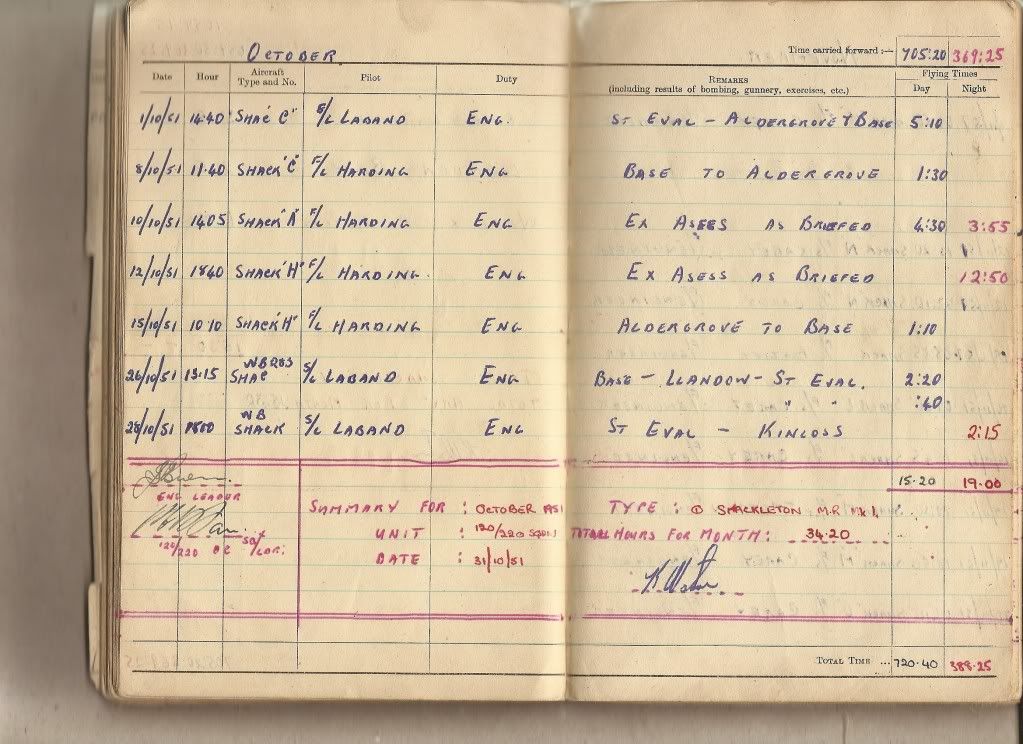 OCTOBER
Time carried forward :— 705:20 369:25
Date Hour Aircraft Type and No. Pilot Duty REMARKS (including results of bombing, gunnery, exercises, etc.) Flying Times Day Night
1/10/51 14:40 "SHAC C" S/L LABAND ENG ST EVAL – ALDERGROVE & BASE 5:10
8/10/51 11:40 SHACK "C" F/L HARDING ENG BASE TO ALDERGROVE 1:30
10/10/51 1405 SHACK "A" F/L HARDING ENG EX ASEES AS BRIEFED 4:30 3:55
12/10/51 1840 SHACK "H" F/L HARDING. ENG EX ASESS AS BRIEFED 12:50
15/10/51 10:10 SHACK "H" F/L HARDING ENG ALDERGROVE TO BASE 1:10
26/10/51 13:15 SHAC WB283 S/L LABAND ENG BASE – LLANDOW – ST EVAL. 2:20
" " :40
28/10/51 WB SHACK S/L LABAND ENG ST EVAL – KINLOSS 2:15
15.20 19.00
ENG LEADER
120/220 SQN
SUMMARY FOR : OCTOBER 1951 TYPE : SHACKLETON M.R. Mk 1.
UNIT : 120/220 SQDN TOTAL HOURS FOR MONTH: 34.20
DATE : 31/10/51
TOTAL TIME ... 720.40 388.25